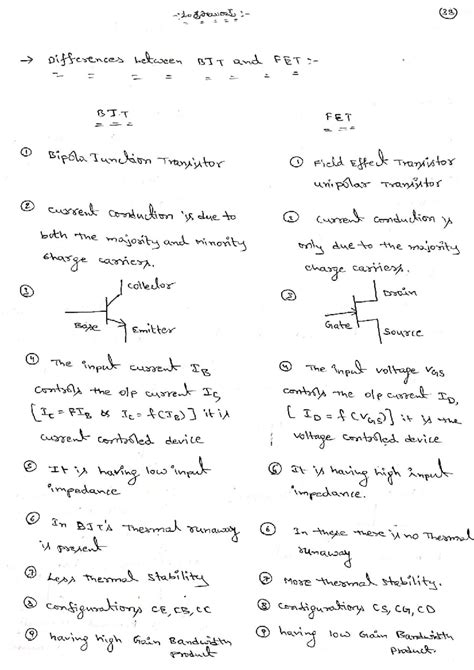 (38)
→ Differences between BJT and FET :-
BJT
FET
① Bipolar Junction Transistor
① Field Effect Transistor
unipolar Transistor
② current conduction is due to
both the majority and minority
charge carriers.
② current conduction is
only due to the majority
charge carriers.
③
collector
Base
Emitter
③
Drain
Gate
Source
④ The input current IB
controls the o/p current IC,
[IC = βIB or IC = f(IB)] it is
current controlled device
④ The input voltage VGS
controls the o/p current ID,
[ID = f(VGS)] it is the
voltage controlled device
⑤ It is having low input
impedance
⑤ It is having high input
impedance.
⑥ In BJT's Thermal runaway
is present
⑥ In these there is no Thermal
runaway
⑦ Less Thermal Stability
⑦ More thermal stability.
⑧ configurations CE, CB, CC
⑧ configurations CS, CG, CD
⑨ having high Gain Bandwidth
product
⑨ having low Gain Bandwidth
product.